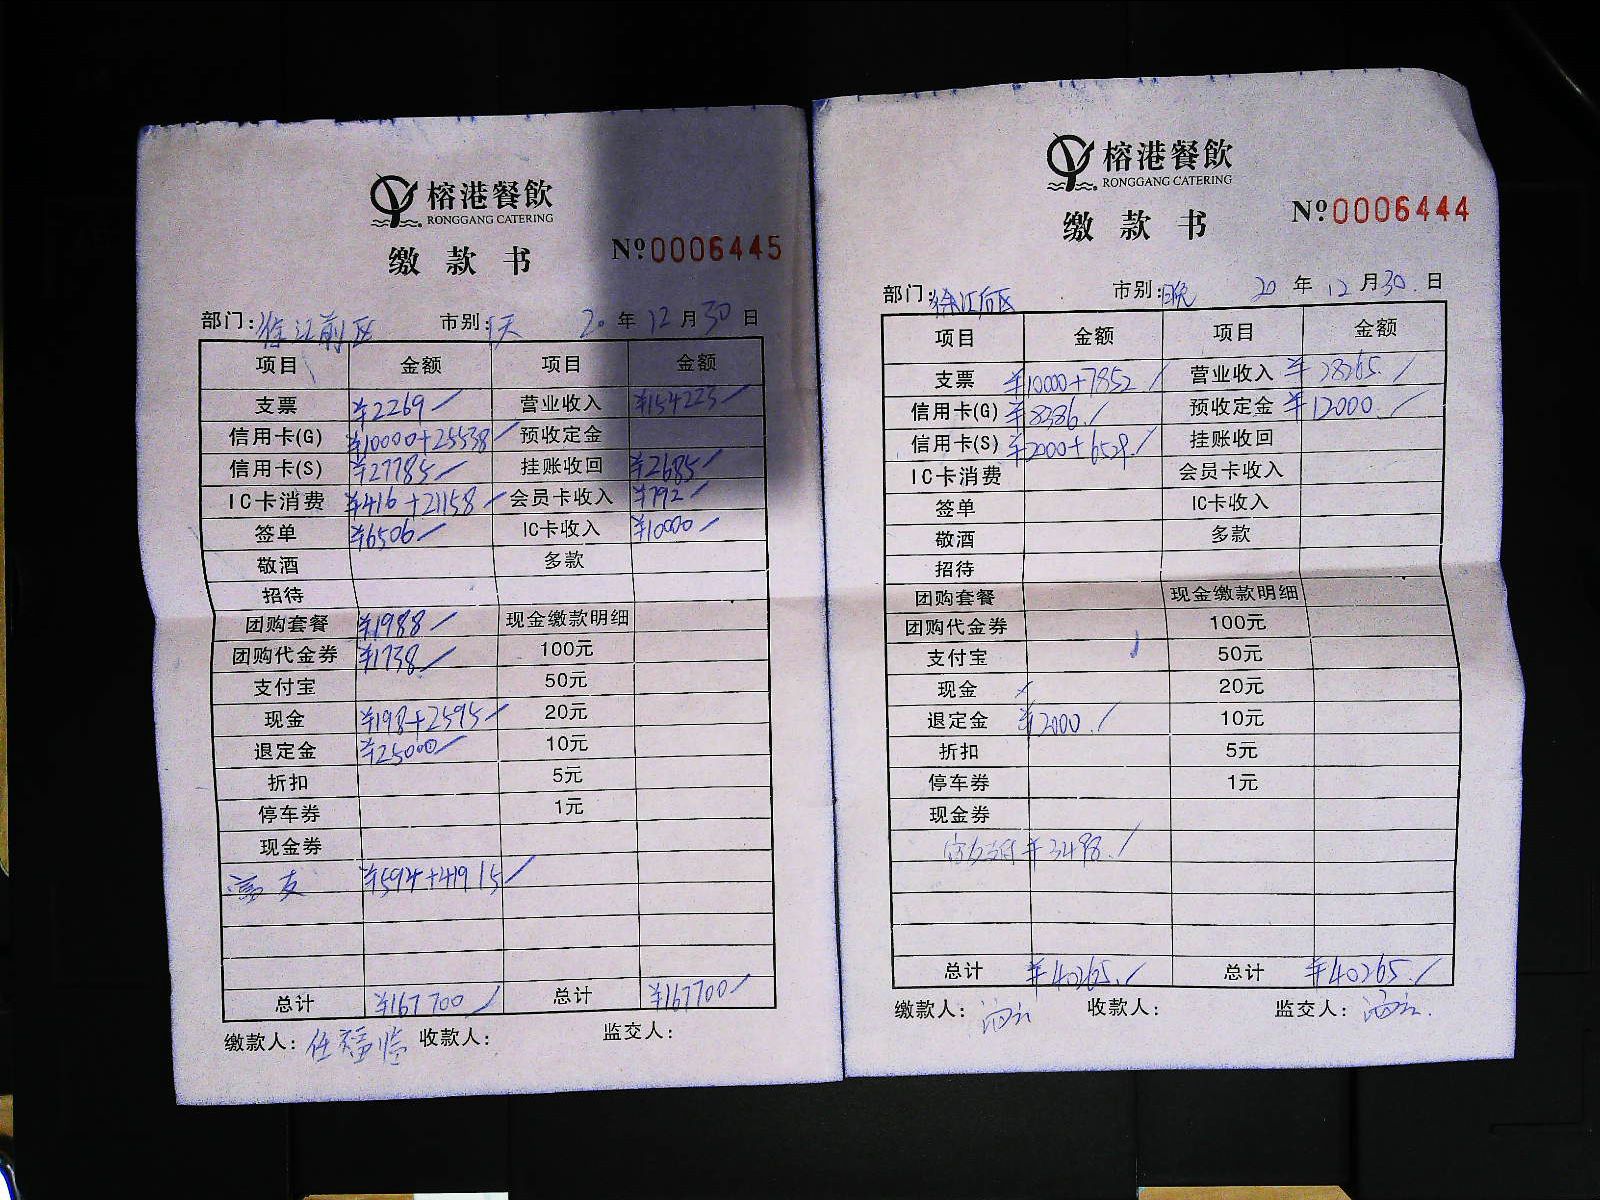 榕港餐飲
RONGGANG CATERING
缴款书
№0006445
部门:徐汇前区 市别:天 20年12月30日
项目 金额 项目 金额
支票 ¥2269 营业收入 ¥154223
信用卡(G) ¥10000+25538 预收定金
信用卡(S) ¥27785 挂账收回 ¥2685
IC卡消费 ¥416+21158 会员卡收入 ¥792
签单 ¥6506 IC卡收入 ¥10000
敬酒 多款
招待
团购套餐 ¥1988 现金缴款明细
团购代金券 ¥1738 100元
支付宝 50元
现金 ¥198+2595 20元
退定金 ¥25000 10元
折扣 5元
停车券 1元
现金券
¥594+41915
总计 ¥167700 总计 ¥167700
缴款人: 收款人: 监交人:
榕港餐飲
RONGGANG CATERING
缴款书
№0006444
部门:徐汇后区 市别:晚 20年12月30日
项目 金额 项目 金额
支票 ¥10000+7852 营业收入 ¥28265
信用卡(G) ¥8386 预收定金 ¥12000
信用卡(S) ¥2000+6529 挂账收回
IC卡消费 会员卡收入
签单 IC卡收入
敬酒 多款
招待
团购套餐 现金缴款明细
团购代金券 100元
支付宝 50元
现金 20元
退定金 ¥2000 10元
折扣 5元
停车券 1元
现金券
¥3498
总计 ¥40265 总计 ¥40265
缴款人: 收款人: 监交人: